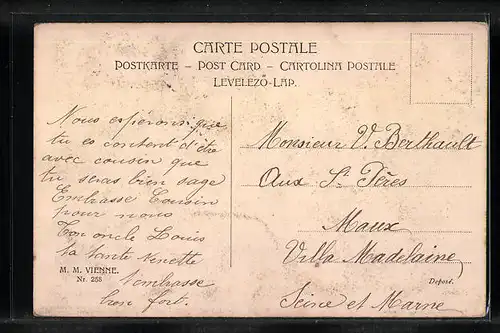 CARTE POSTALE
POSTKARTE – POST CARD – CARTOLINA POSTALE
LEVELEZŐ-LAP.
Nous espérons que
tu es content d'être
avec cousin que
tu seras bien sage
Embrasse Cousin
pour nous
Ton oncle Louis
ta tante Nenette
t'embrasse
bien fort.
M. M. VIENNE.
Nr. 258
Monsieur V. Berthault
Aux St Pères
Maux
Villa Madelaine
Seine et Marne
Déposé.